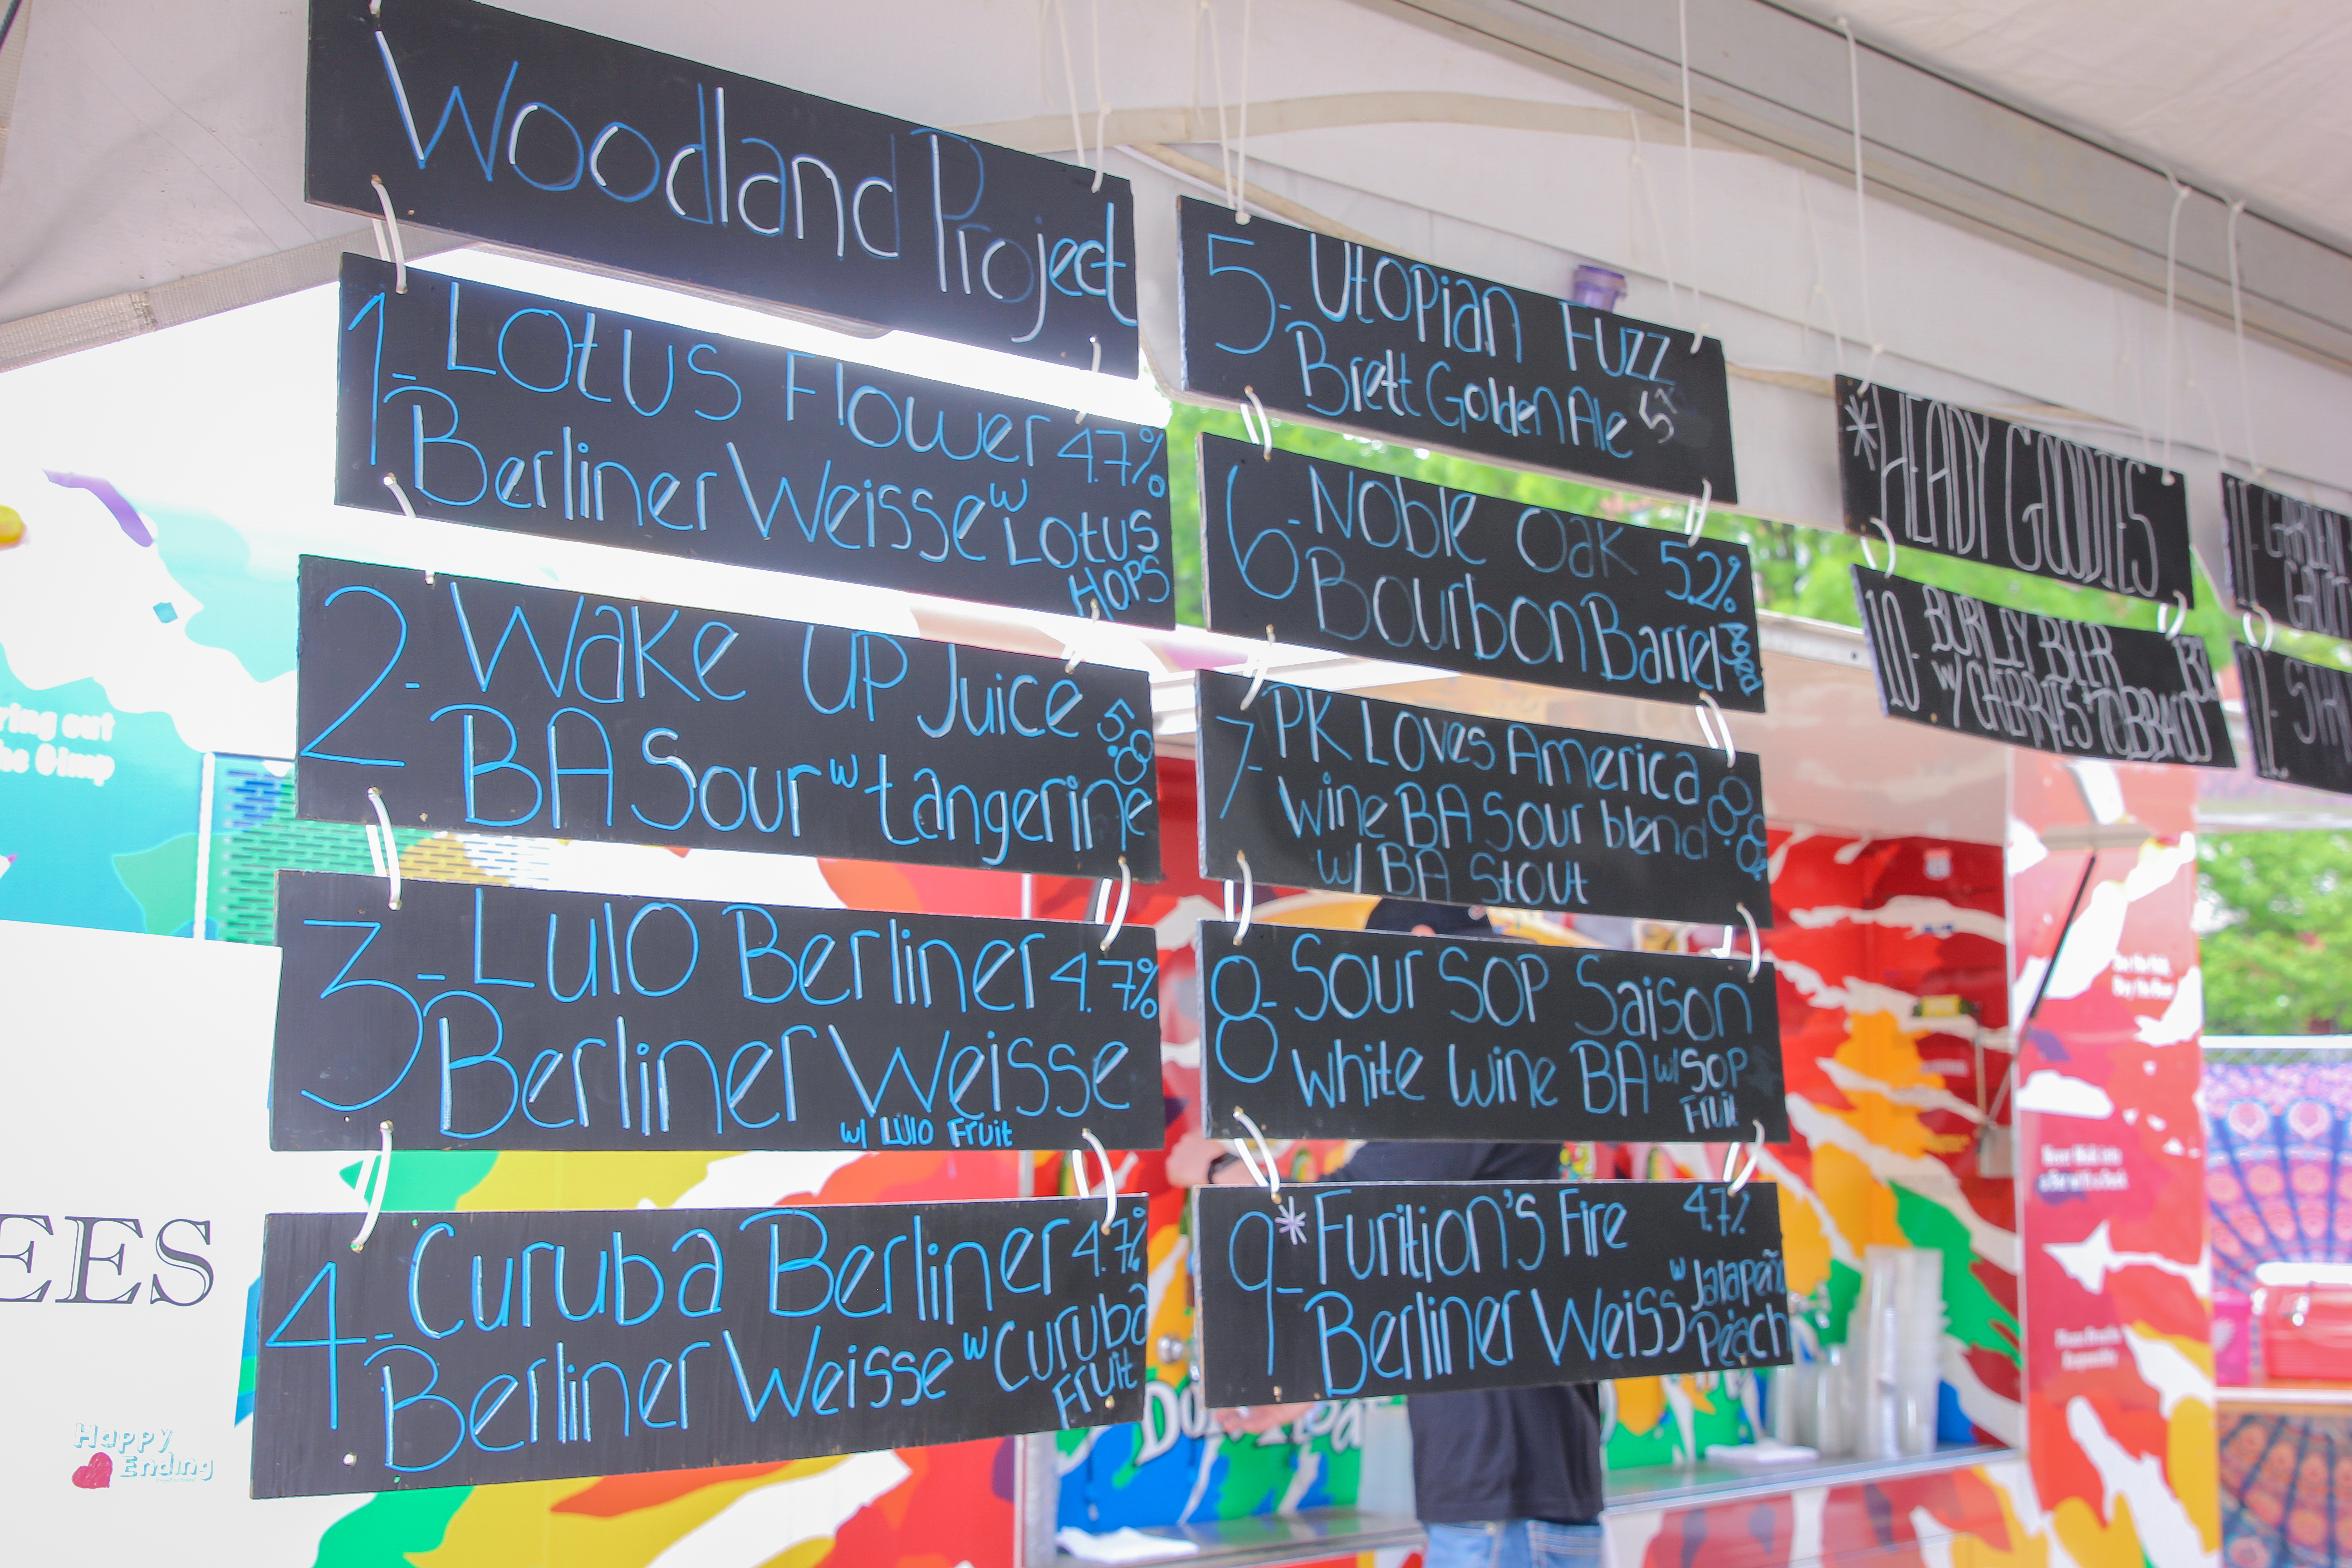 Woodland Project
1- Lotus Flower 4.7%
Berliner Weisse w Lotus
Hops
2- Wake Up Juice
BA Sour w tangerine
3- Lulo Berliner 4.7%
Berliner Weisse
w/ Lulo Fruit
4- Curuba Berliner 4.7%
Berliner Weisse w Curuba
Fruit
5- Utopian Fuzz
Brett Golden Ale 5%
6- Noble Oak 5.2%
Bourbon Barrel Aged
7- PK Loves America
Wine BA Sour blend
w/ BA Stout
8- Sour Sop Saison
White Wine BA w/ Sop
Fruit
9-* Furition's Fire 4.7%
Berliner Weiss w Jalapeñ
Peach
*HEADY GOODIES
10- BURLEY BEER
w/ CHERRIES
ring out
EES
Happy
Ending